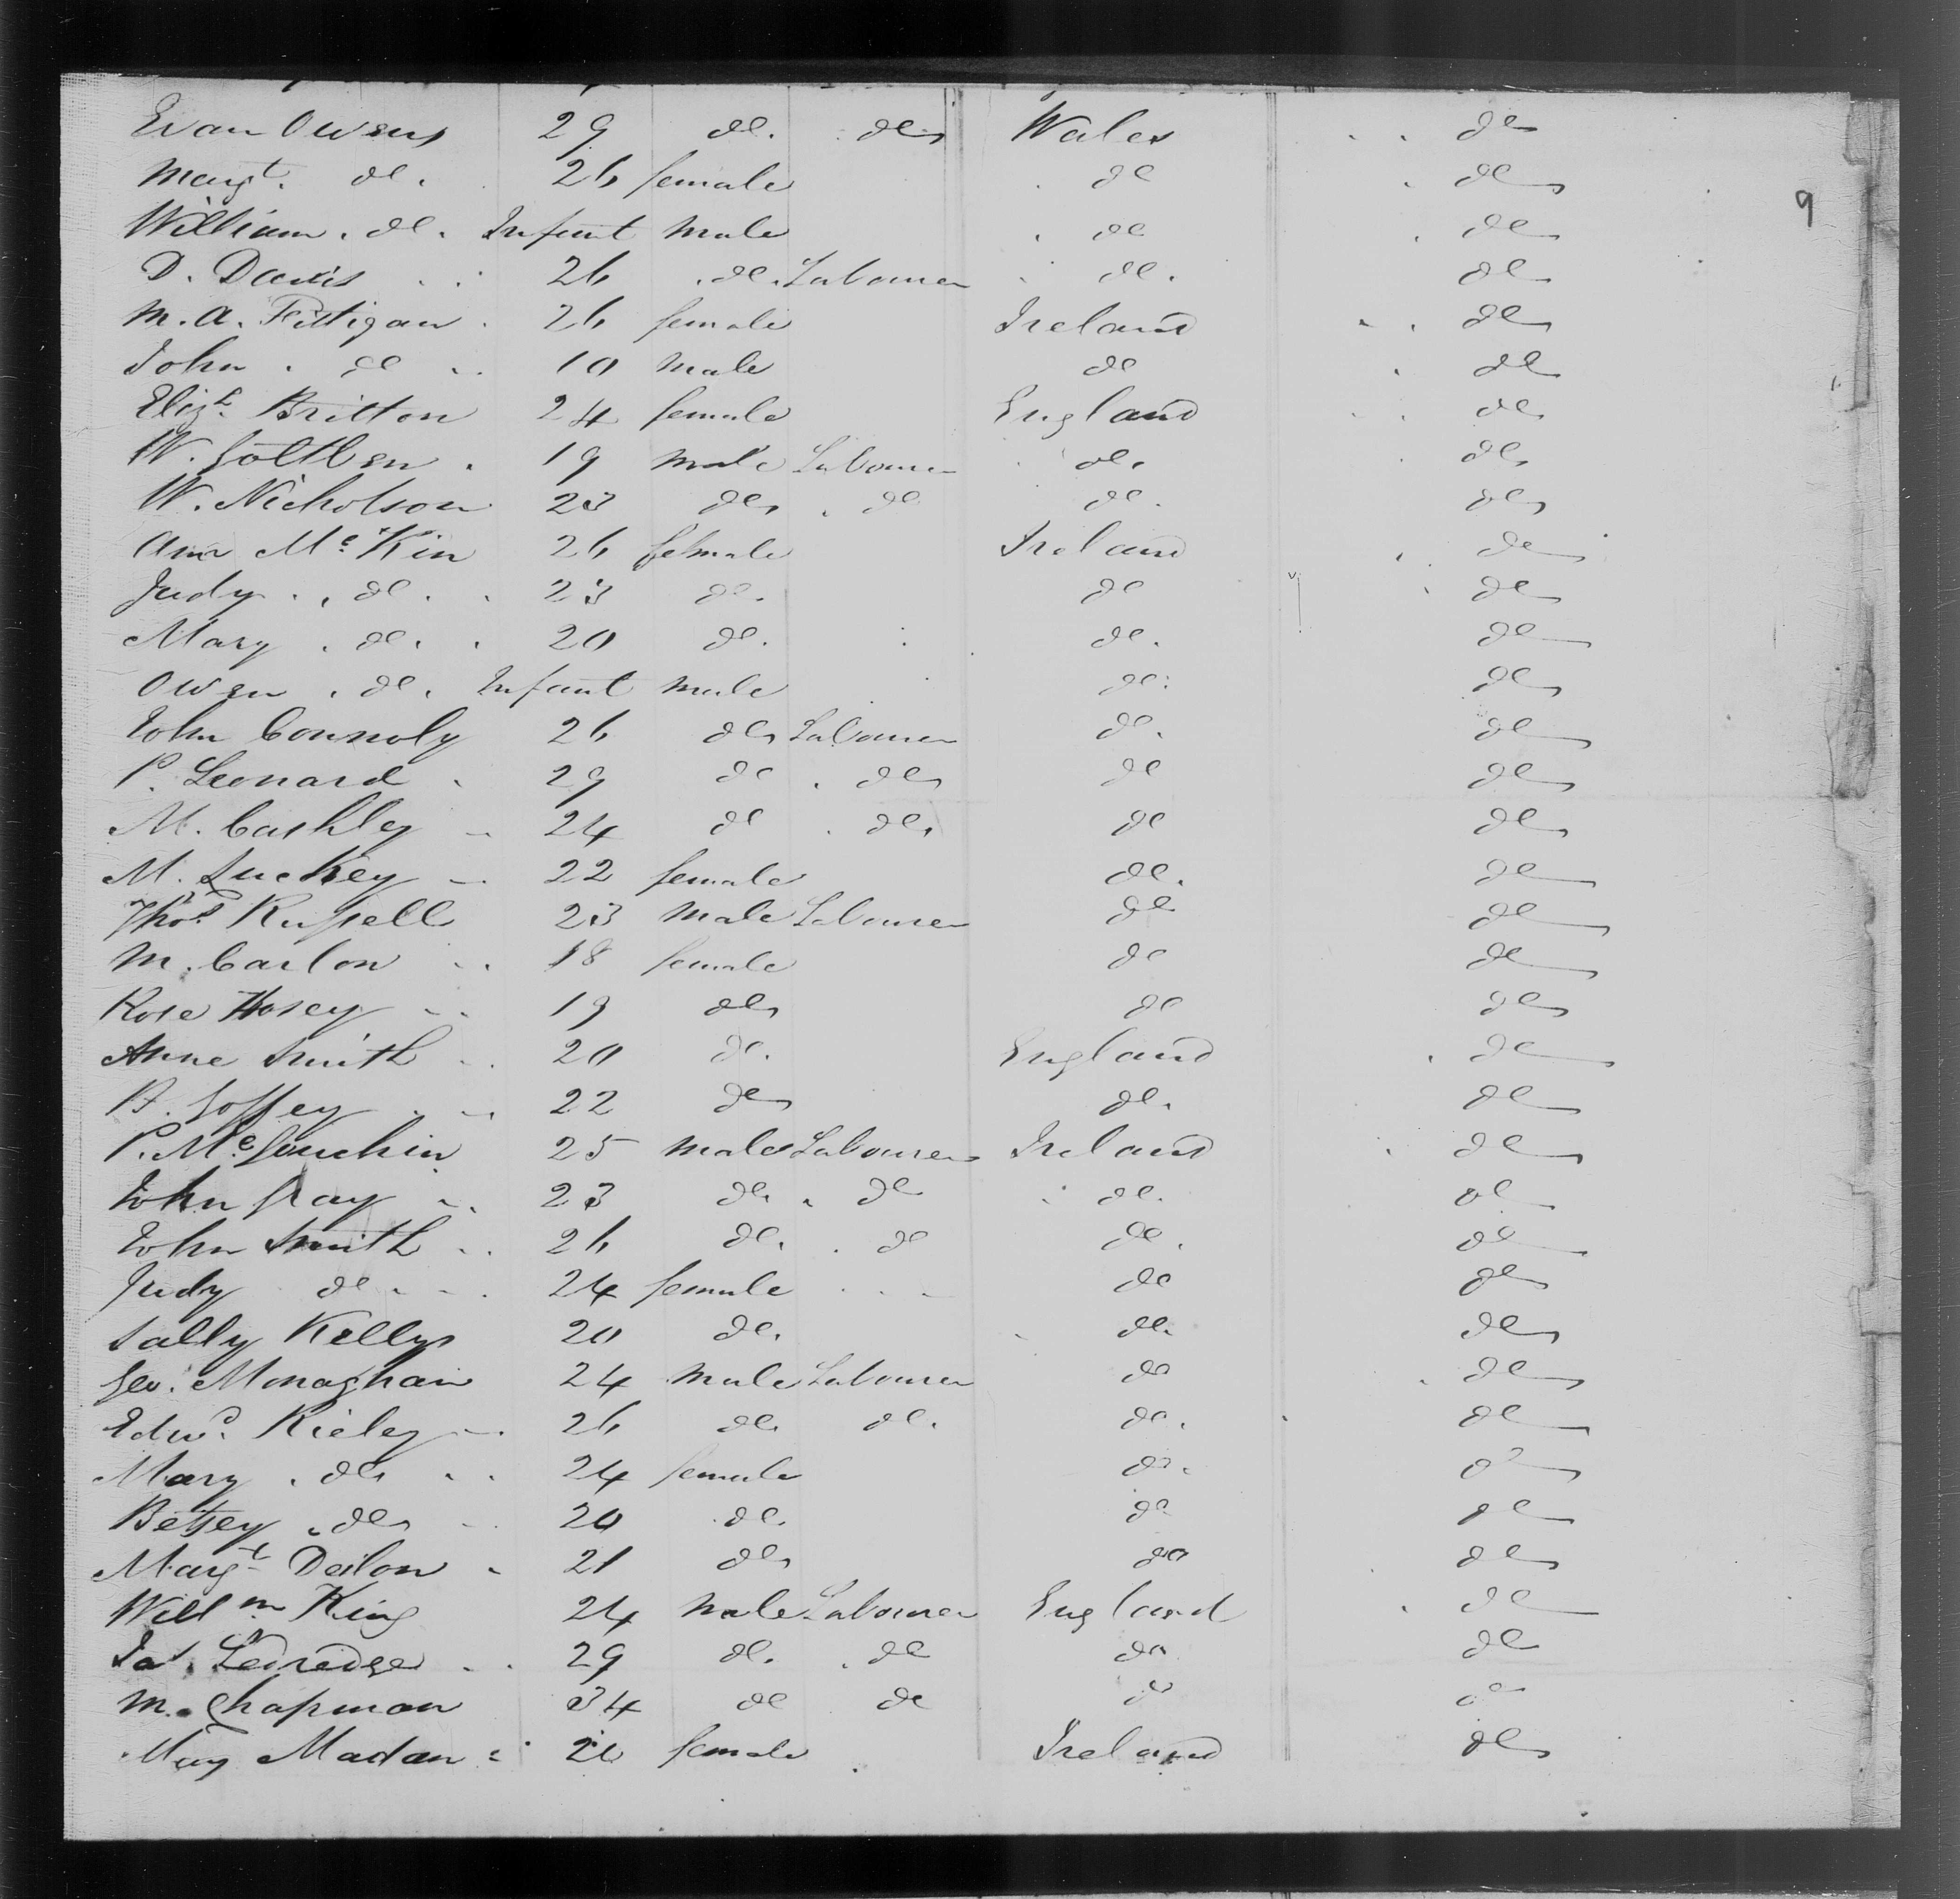 Evan Owens 29 do. do Wales do
Margt. do. 26 female do do
William. do. Infant male do do
D. Davis 26 do. Labourer do. do
M. A. Fittigan 26 female Ireland do
John. do 10 male do do
Elizth. Britton 24 female England do
W. 19 male Labourer do. do
W. Nicholson 23 do do do. do
Ann McKin 26 female Ireland do
Judy. do. 23 do. do do
Mary. do. 20 do. do. do
Owen. do. Infant male do. do
John Connoly 26 do Labourer do. do
P. Leonard 29 do do do do
M. Cashley 24 do do do do
M. Luckey 22 female do. do
Thos. Russell 23 male Labourer do do
M. Carlon 18 female do do
Rose Hosey 19 do do do
Anne Smith 20 do. England do
B. Goffey 22 do do. do
P. McGuchin 25 male Labourer Ireland do
John Gray 23 do. do do. do
John Smith 26 do. do do. do
Judy do 24 female do do
Sally Kelly 20 do. do. do
Geo. Monaghan 24 male Labourer do do
Edwd. Rieley 26 do. do. do. do
Mary. do 24 female do. do
Betsey. do 20 do. do do
Margt. Deilon 21 do do do
Willm. King 24 male Labourer England do
Jas. Ledredge 29 do. do do do
M. Chapman 34 do do do do
Mary Madan female Ireland do
9